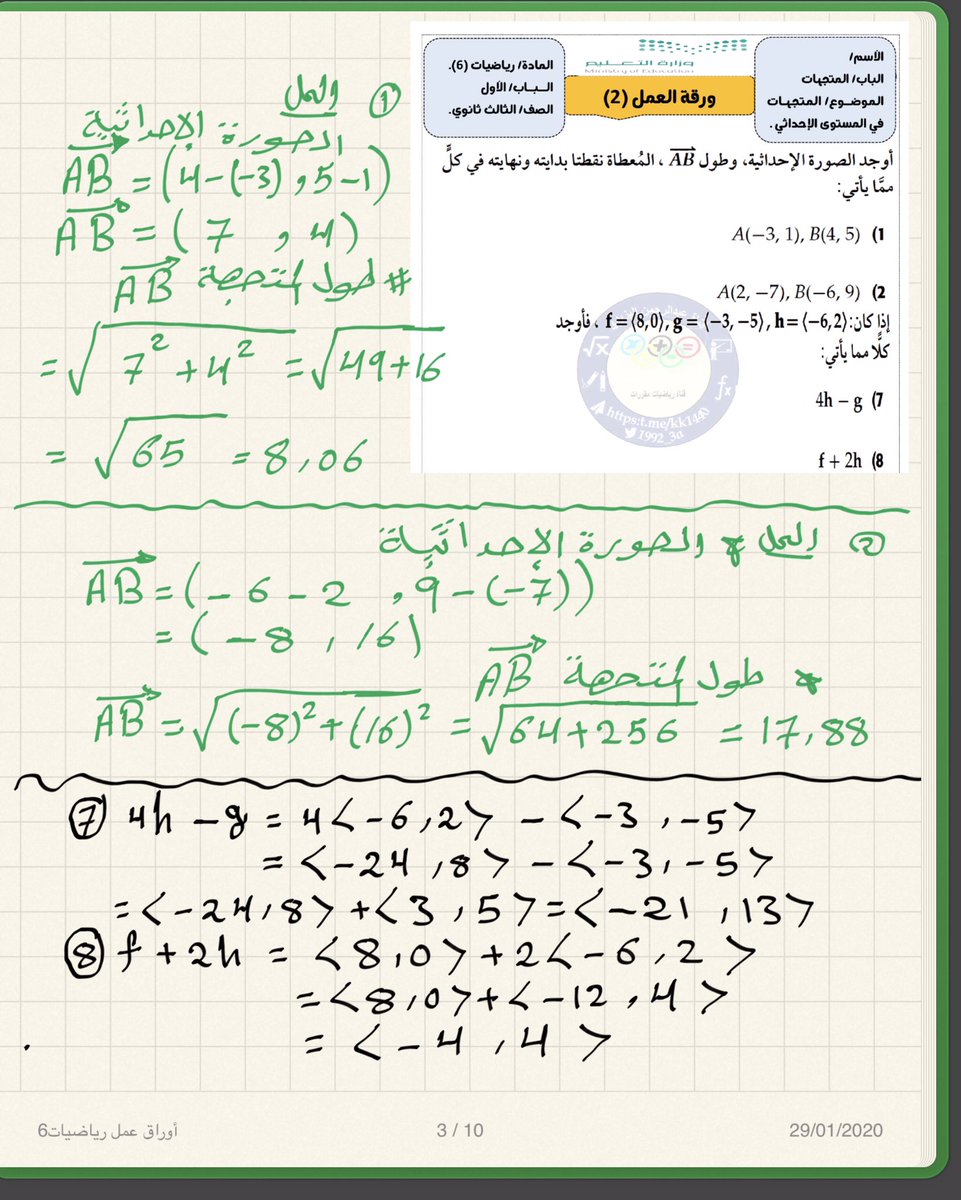 الأسم/
الباب/ المتجهات
الموضوع/ المتجهات
في المستوى الإحداثي .
وزارة التعليم
Ministry of Education
ورقة العمل (2)
المادة/ رياضيات (6).
الباب/ الأول
الصف/ الثالث ثانوي.
أوجد الصورة الإحداثية، وطول AB ، المُعطاة نقطتا بدايته ونهايته في كلٍّ
ممَّا يأتي:
A(−3, 1), B(4, 5) (1
A(2, −7), B(−6, 9) (2
إذا كان: f = ⟨8,0⟩, g = ⟨−3, −5⟩, h = ⟨−6,2⟩ ، فأوجد
كلًّا مما يأتي:
4h − g (7
f + 2h (8
قناة رياضيات مقررات
https:t.me/kk1440
1992_3a
① الحل
الصورة الإحداثية
AB = (4-(-3) , 5-1)
AB = ( 7 , 4 )
# طول المتجهة AB
= √7² + 4² = √49+16
= √65 = 8,06
② الحل الصورة الإحداثية
AB = ( - 6 - 2 , 9 - (-7))
= ( - 8 , 16 )
* طول المتجهة AB
AB = √(-8)² + (16)² = √64+256 = 17,88
⑦ 4h - g = 4< -6 , 2 > - < -3 , -5 >
= < -24 , 8 > - < -3 , -5 >
= < -24 , 8 > + < 3 , 5 > = < -21 , 13 >
⑧ f + 2h = < 8 , 0 > + 2 < - 6 , 2 >
= < 8 , 0 > + < -12 , 4 >
= < - 4 , 4 >
أوراق عمل رياضيات6
3 / 10
29/01/2020